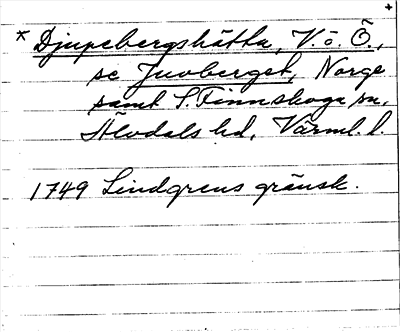 +
* Djupebergshåtta, V. o. Ö.,
se Juvberget, Norge
samt S. Finnskoga sn,
Älvdals hd, Värml. l.
1749 Lindgrens gränsk.